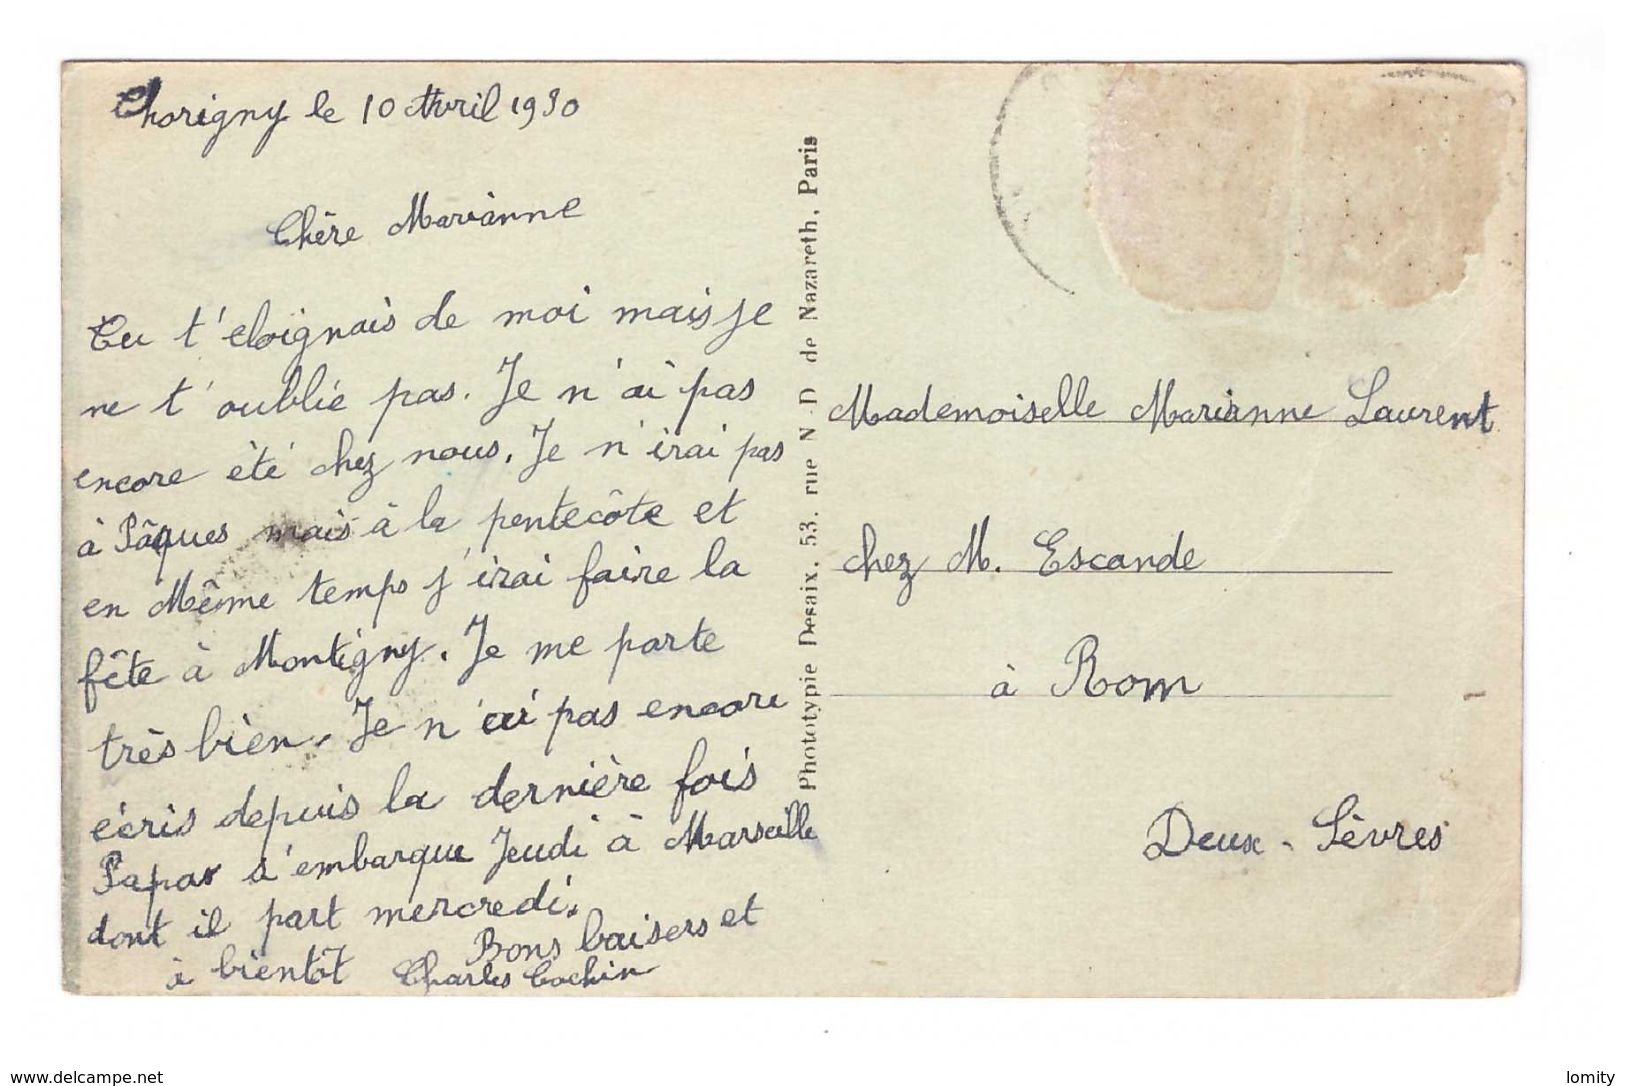 Thorigny le 10 Avril 1930
Chère Marianne
Tu t'eloignais de moi mais je
ne t'oublie pas. Je n'ai pas
encore été chez nous. Je n'irai pas
à Pâques mais à la pentecôte et
en Même temps j'irai faire la
fête à Montigny. Je me porte
très bien. Je n'ai pas encore
écris depuis la dernière fois
Papa s'embarque Jeudi à Marseille
dont il part mercredi.
Bons baisers et
à bientôt Charles Cochin
Phototypie Desaix, 53, rue N.-D. de Nazareth, Paris
Mademoiselle Marianne Laurent
chez M. Escande
à Rom
Deux-Sèvres
www.delcampe.net
lomity